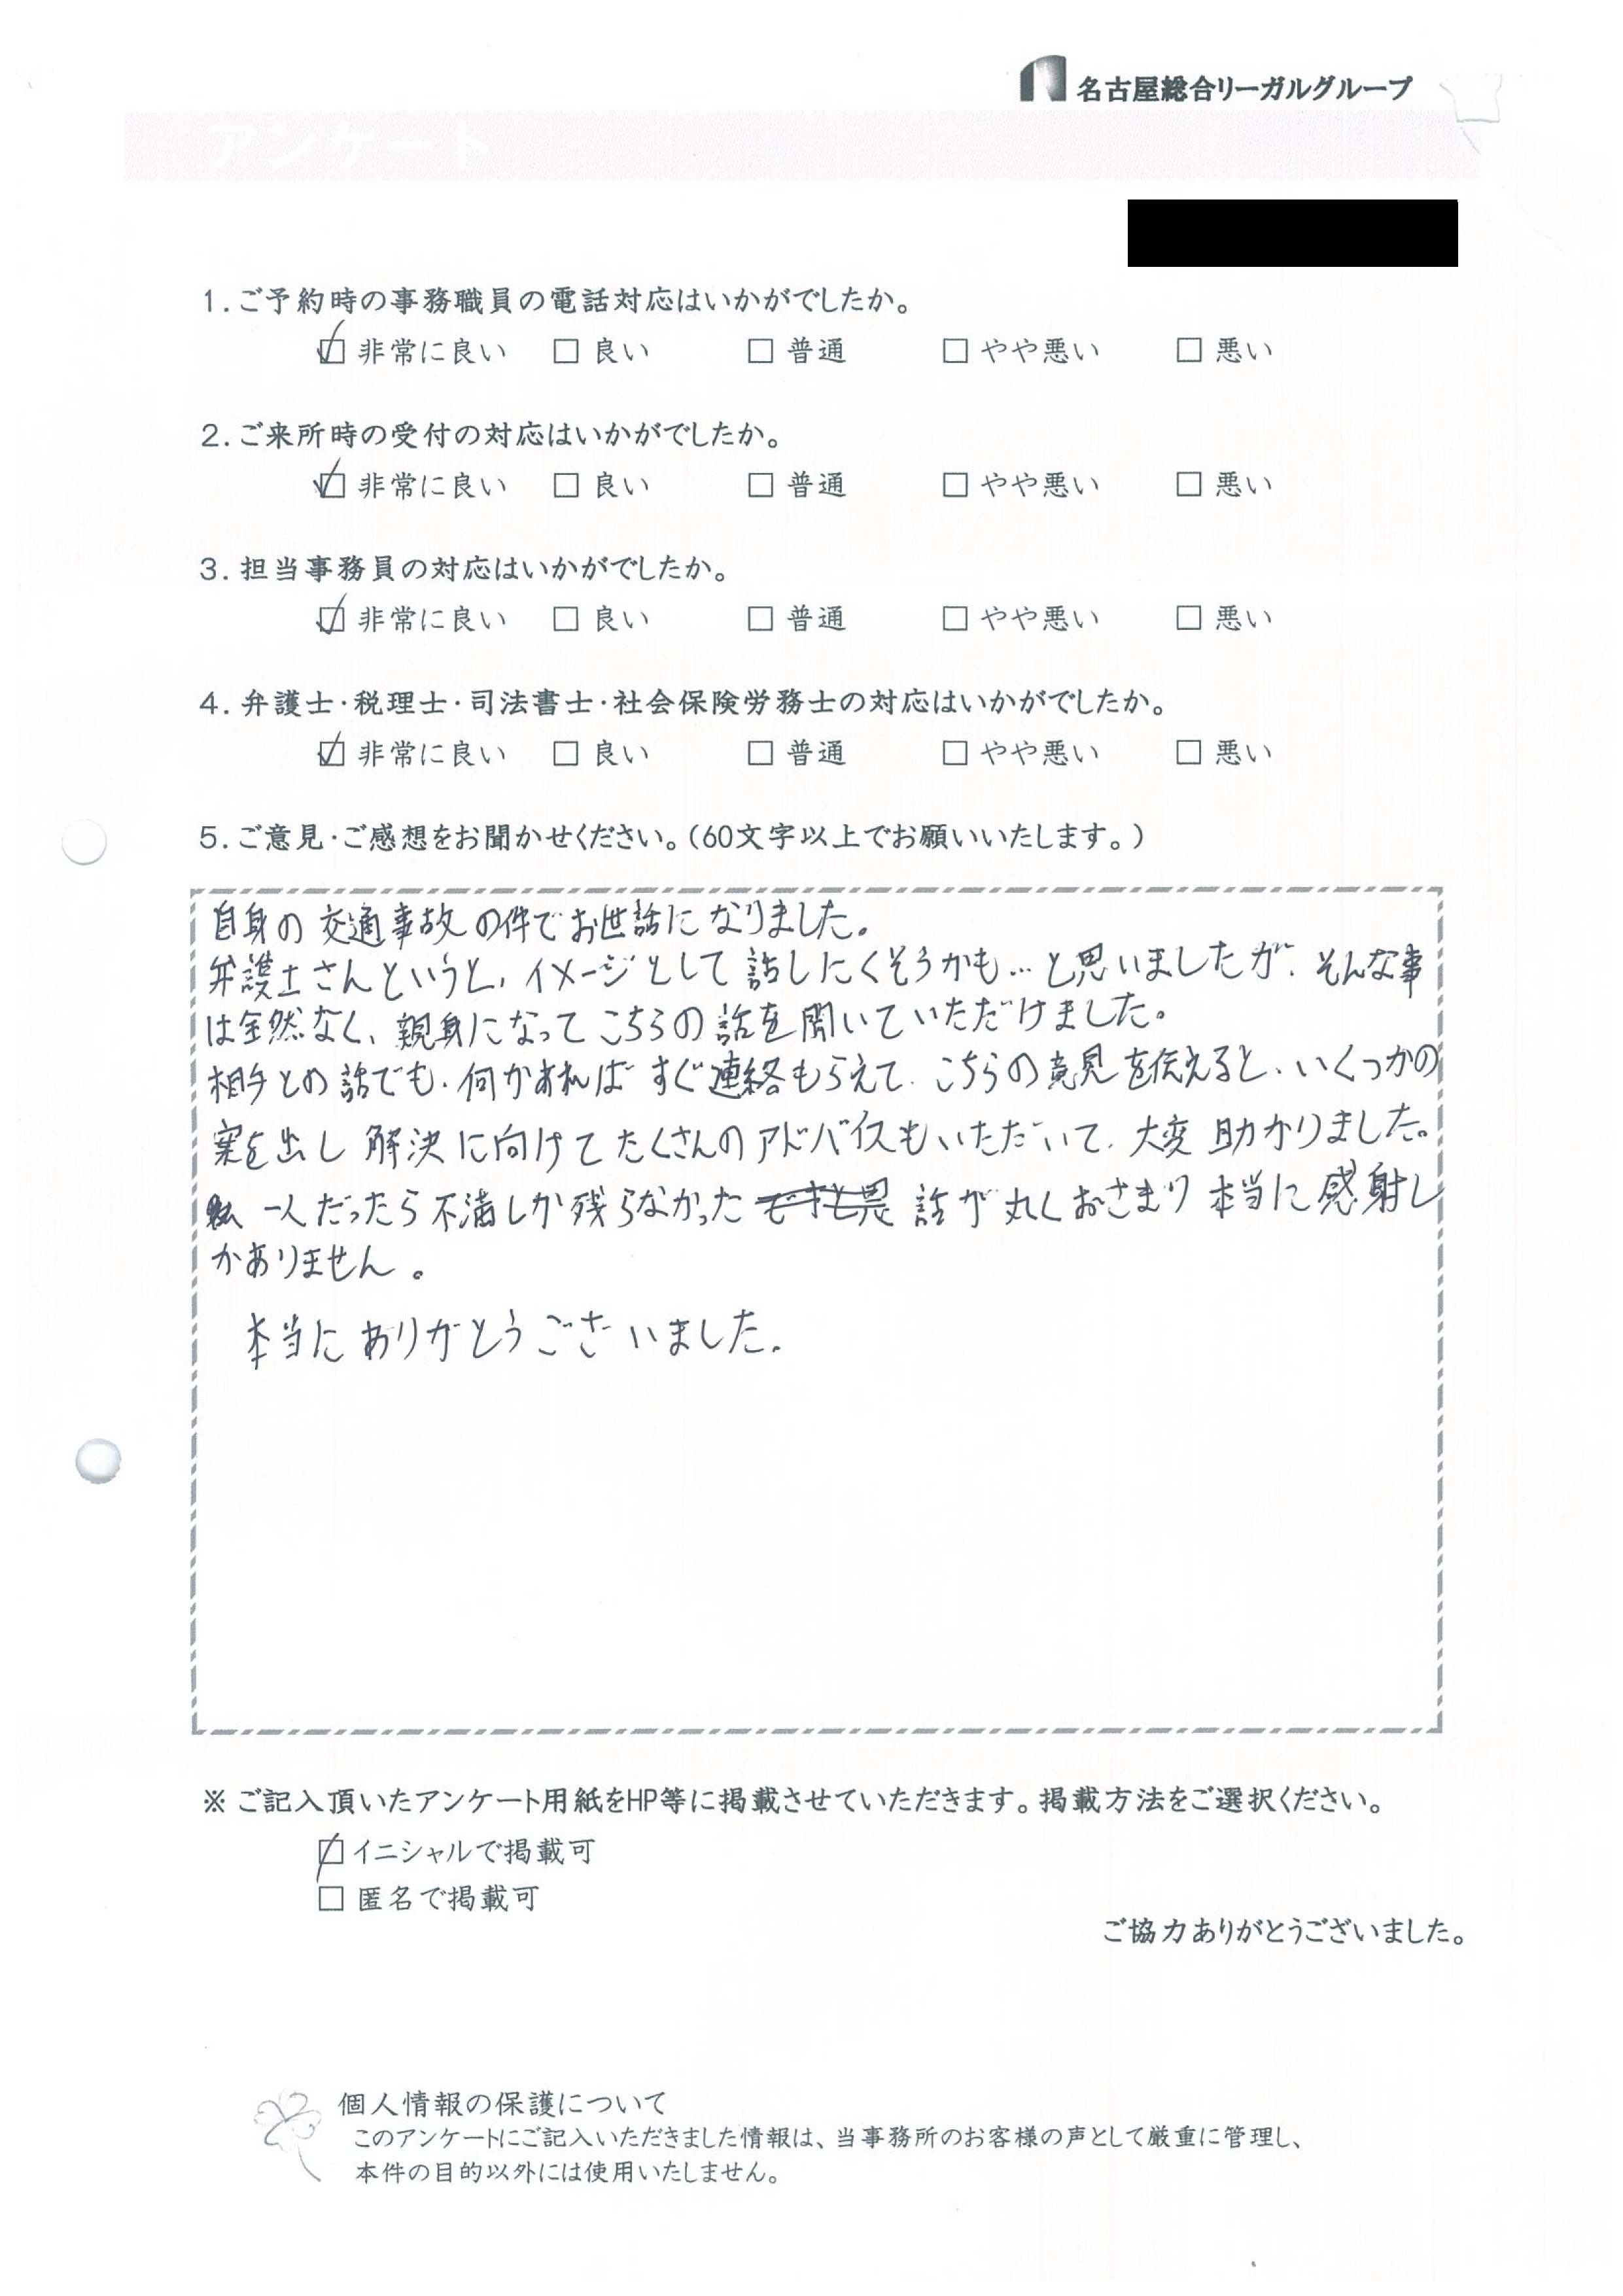 名古屋総合リーガルグループ
アンケート
1.ご予約時の事務職員の電話対応はいかがでしたか。
☑ 非常に良い □ 良い □ 普通 □ やや悪い □ 悪い
2.ご来所時の受付の対応はいかがでしたか。
☑ 非常に良い □ 良い □ 普通 □ やや悪い □ 悪い
3.担当事務員の対応はいかがでしたか。
☑ 非常に良い □ 良い □ 普通 □ やや悪い □ 悪い
4.弁護士・税理士・司法書士・社会保険労務士の対応はいかがでしたか。
☑ 非常に良い □ 良い □ 普通 □ やや悪い □ 悪い
5.ご意見・ご感想をお聞かせください。(60文字以上でお願いいたします。)
自身の交通事故の件でお世話になりました。
弁護士さんというと、イメージとして話しにくそうかも…と思いましたが、そんな事
は全然なく、親身になってこちらの話を聞いていただけました。
相手との話でも、何かあればすぐ連絡もらえて、こちらの意見を伝えると、いくつかの
案を出し解決に向けてたくさんのアドバイスもいただいて、大変助かりました。
私一人だったら不満しか残らなかった 話が丸くおさまり本当に感謝し
かありません。
本当にありがとうございました。
※ ご記入頂いたアンケート用紙をHP等に掲載させていただきます。掲載方法をご選択ください。
☑ イニシャルで掲載可
□ 匿名で掲載可
ご協力ありがとうございました。
個人情報の保護について
このアンケートにご記入いただきました情報は、当事務所のお客様の声として厳重に管理し、
本件の目的以外には使用いたしません。